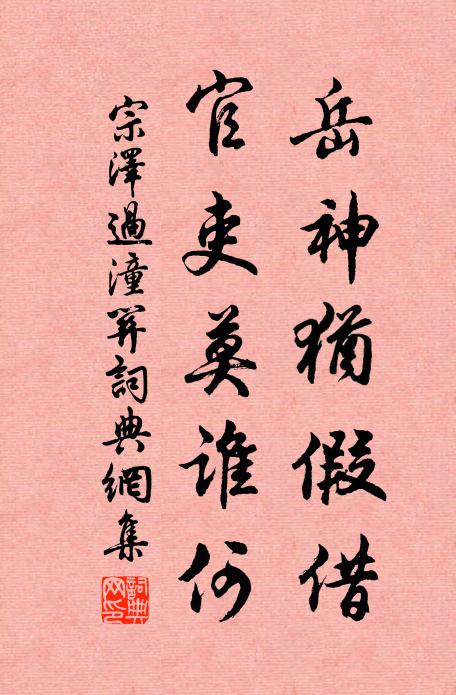 岳神猶假借
官吏莫誰何
宗澤過潼関詞典網集
詞典网印